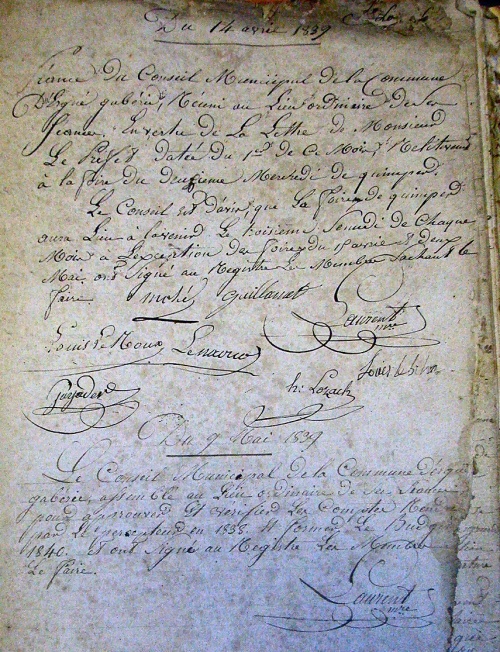 Du 14 avril 1839
Séance du Conseil Municipal de la Commune
D'Ergué gabéric, Réuni au Lieu ordinaire de ses
séances. En vertu de La Lettre de Monsieur
Le Préfet datée du 1er de ce Mois, Relative
à la foire du deuxième Mercredi de quimper.
Le Conseil est d'avis que la foire de quimper
aura Lieu à l'avenir le troisième Samedi de chaque
Mois à L'exception des foires du 15 avril & deux
Mai, ont Signé au Registre Les Membres Sachant le
faire
Laurent
mre
Louis Le Noux Lenaour
h: Lozach
Du 9 Mai 1839
Le Conseil Municipal de la Commune d'ergué
gabéric, assemblé au Lieu ordinaire de ses Séances
pour approuver et vérifier Les Comptes Rendus
par Le percepteur en 1838. et former Le Budget
1840. et ont Signé au Registre Les Membres
Le faire.
Laurent
mre